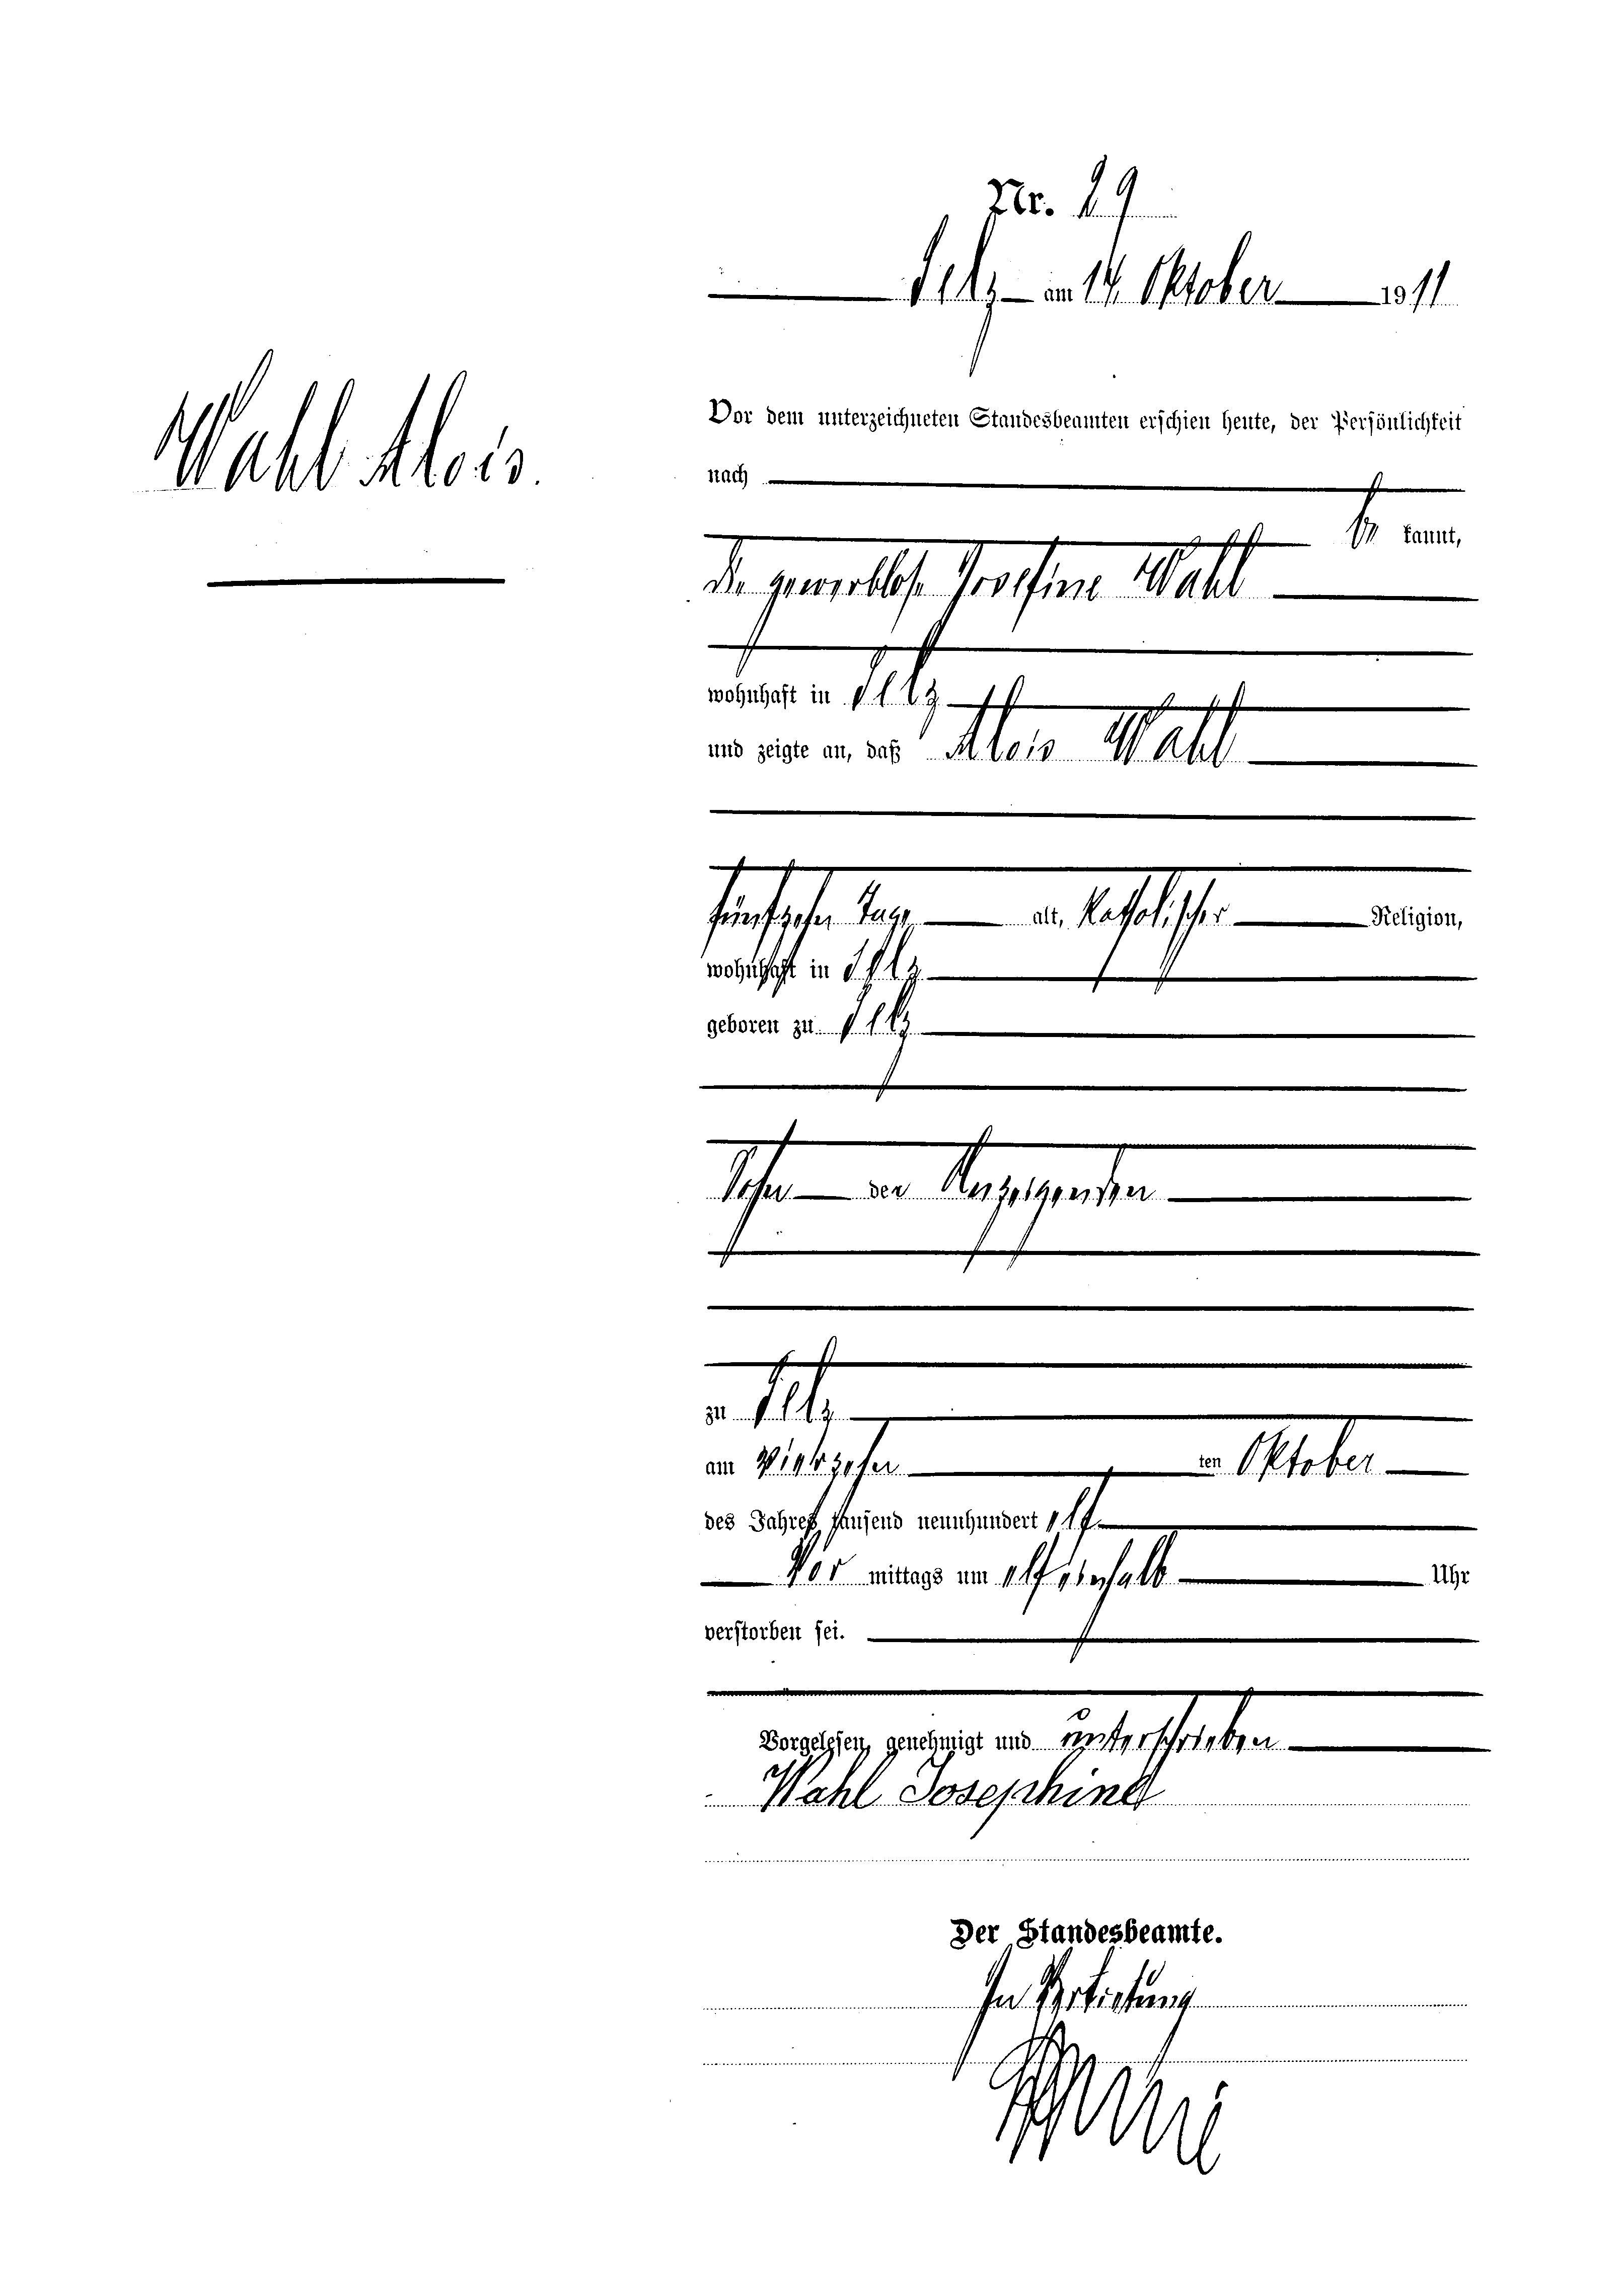 Nr. 29
Selz am 14. Oktober 1911
Wahl Alois.
Vor dem unterzeichneten Standesbeamten erschien heute, der Persönlichkeit
nach
be kannt,
die gewerblose Josefine Wahl
wohnhaft in Selz
und zeigte an, daß Alois Wahl
fünfzehn Tage alt, katholischer Religion,
wohnhaft in Selz
geboren zu Selz
Sohn der Anzeigenden
zu Selz
am vierzehn ten Oktober
des Jahres tausend neunhundert elf
Vor mittags um elf einhalb Uhr
verstorben sei.
Vorgelesen, genehmigt und unterschrieben
Wahl Josephine
Der Standesbeamte.
In Vertretung